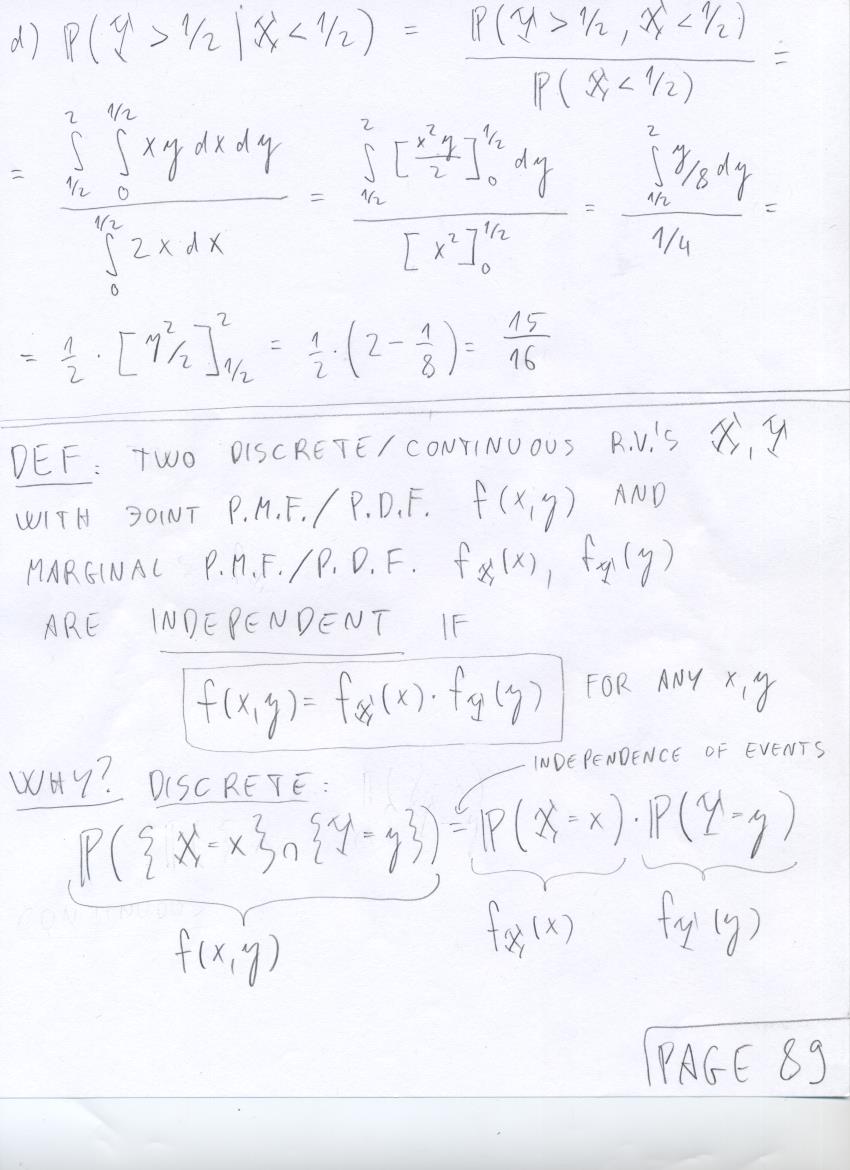 d) ℙ(Y > 1/2 | X < 1/2) = ℙ(Y > 1/2, X < 1/2) / ℙ(X < 1/2) =
= ∫_{1/2}^{2} ∫_{0}^{1/2} xy dx dy / ∫_{0}^{1/2} 2x dx = ∫_{1/2}^{2} [x²y/2]_{0}^{1/2} dy / [x²]_{0}^{1/2} = ∫_{1/2}^{2} y/8 dy / 1/4 =
= 1/2 · [y²/2]_{1/2}^{2} = 1/2 · (2 - 1/8) = 15/16
DEF: TWO DISCRETE/CONTINUOUS R.V.'S X, Y
WITH JOINT P.M.F./P.D.F. f(x,y) AND
MARGINAL P.M.F./P.D.F. f_X(x), f_Y(y)
ARE INDEPENDENT IF
f(x,y) = f_X(x) · f_Y(y) FOR ANY x, y
WHY? DISCRETE: INDEPENDENCE OF EVENTS
ℙ({X=x}∩{Y=y}) = ℙ(X=x)·ℙ(Y=y)
f(x,y) f_X(x) f_Y(y)
PAGE 89